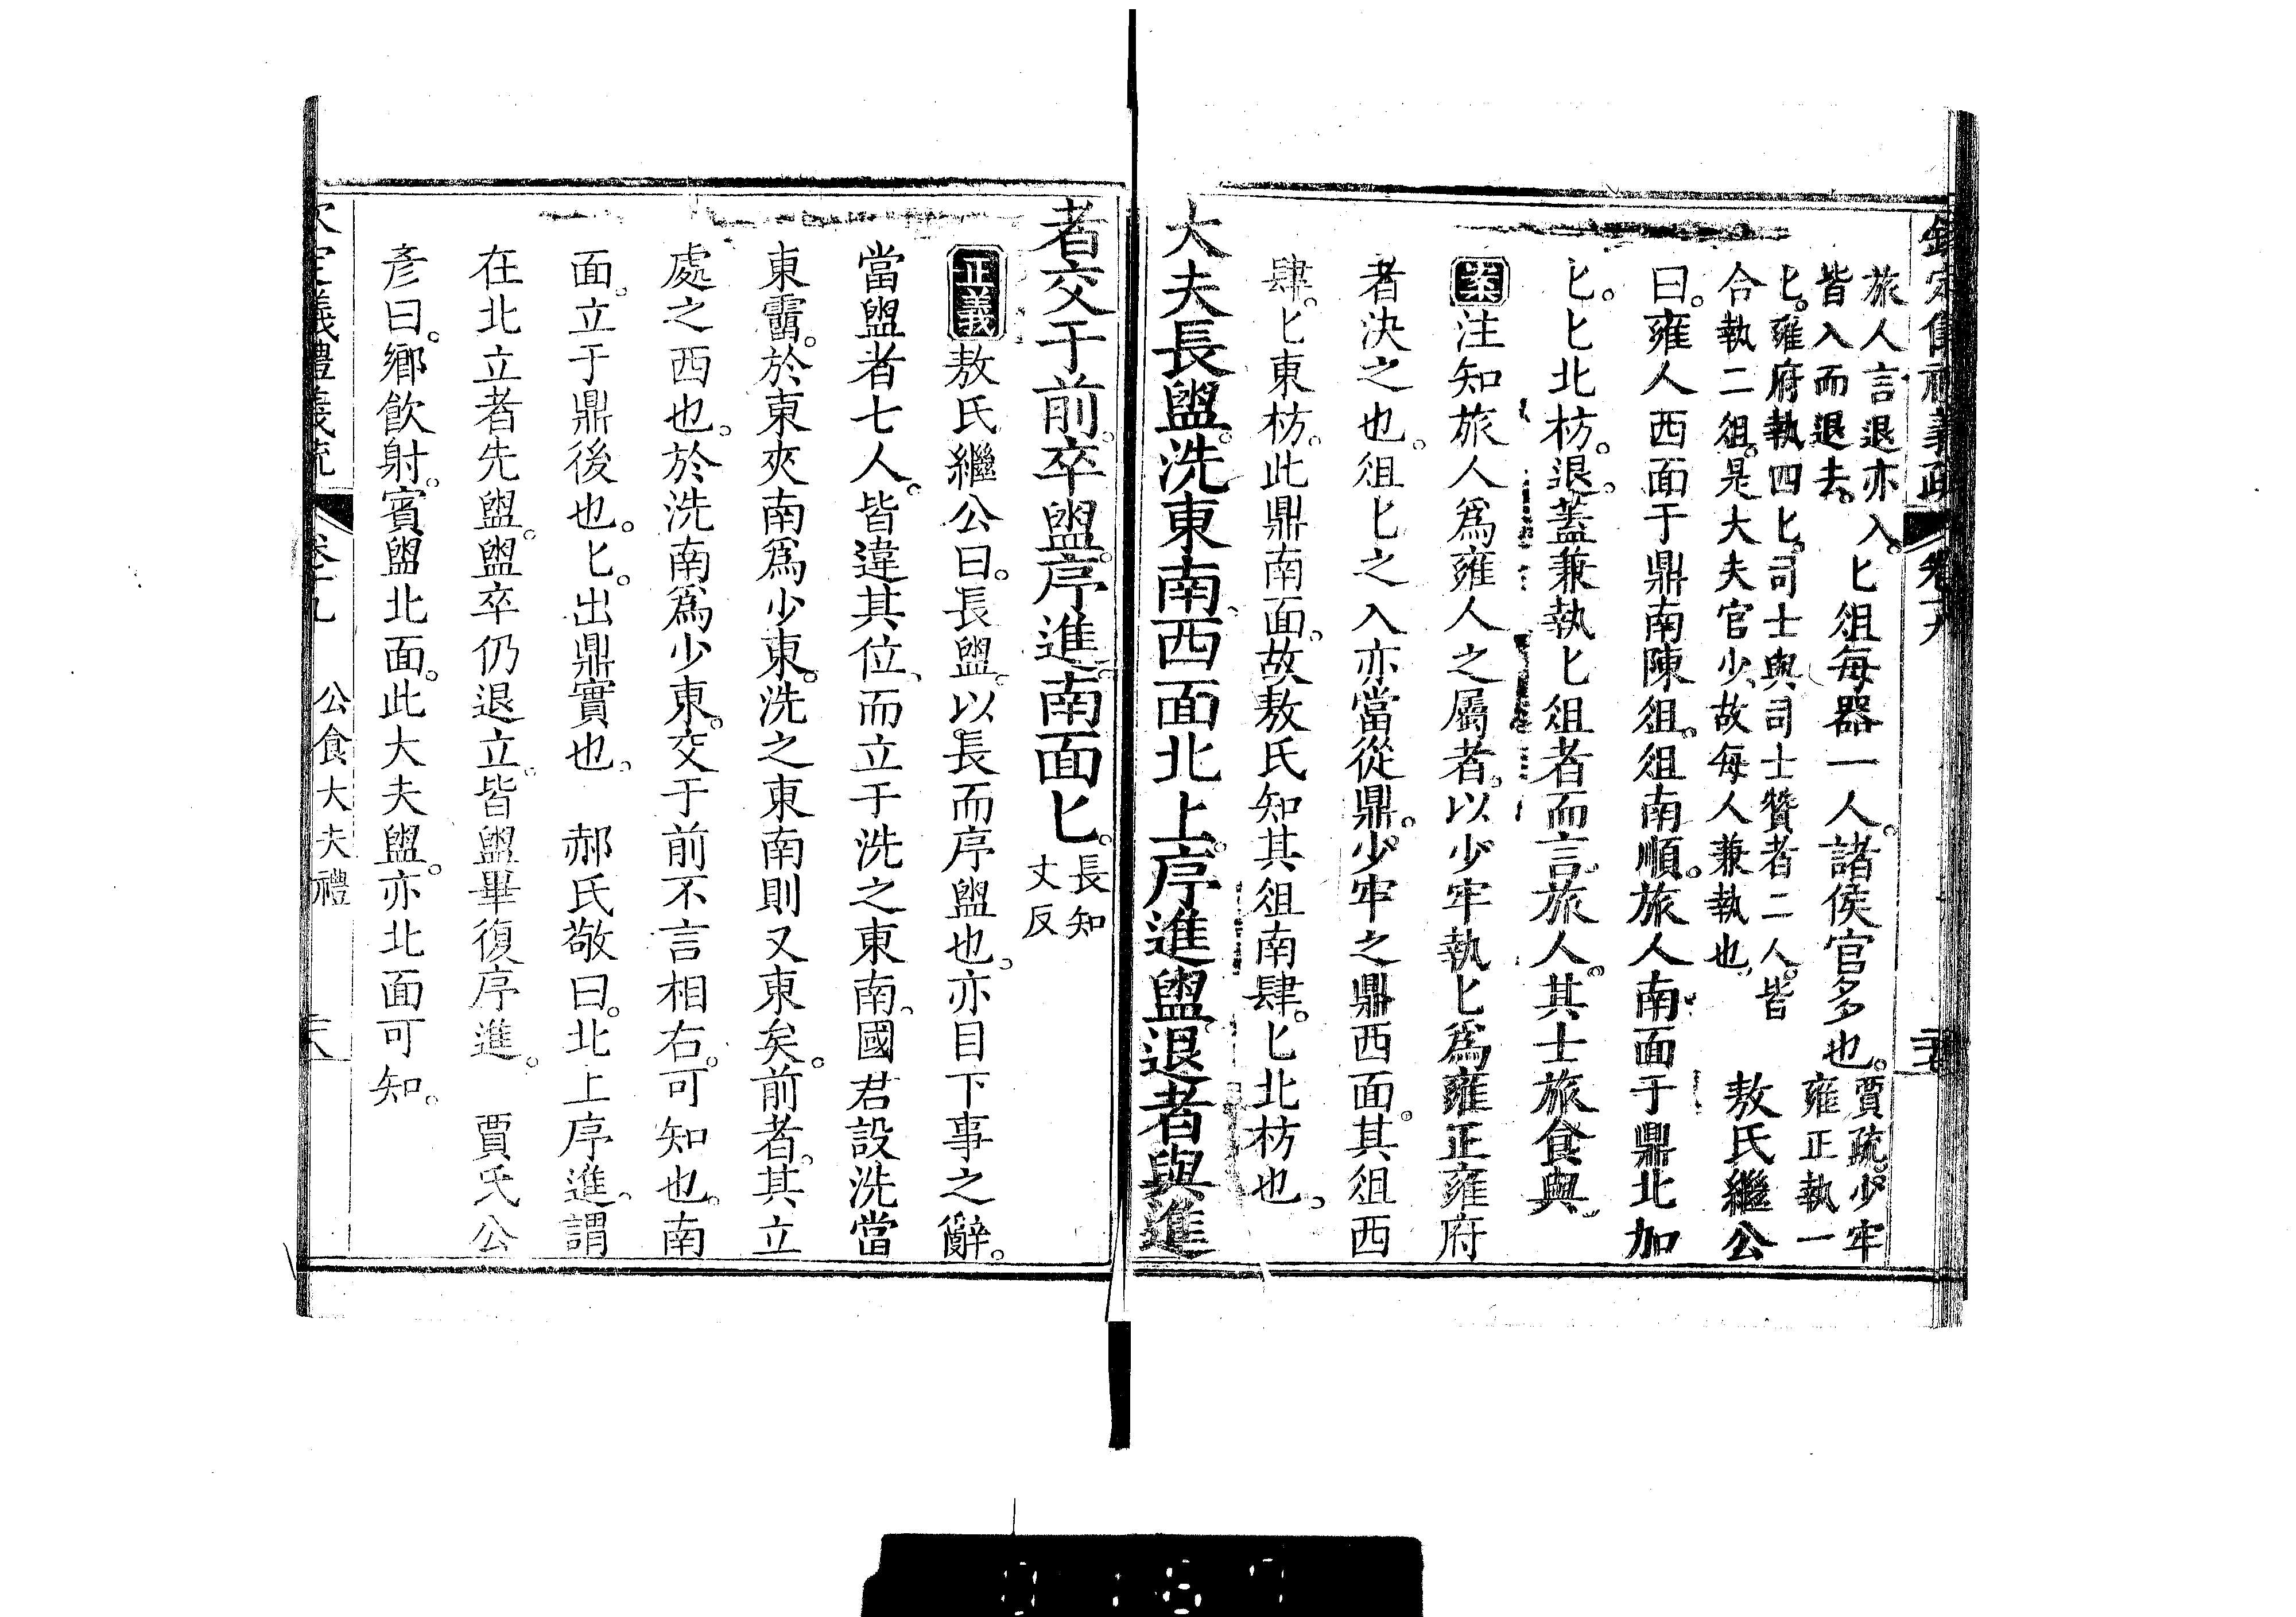 旅人言退亦入
皆入而退去
匕俎每器一人諸侯官多也
賈疏少牢
雍正執一
匕雍府執四匕司士與司士贊者二人皆
合執二俎是大夫官少故每人兼執也
敖氏繼公
曰雍人西面于鼎南陳俎俎南順旅人南面于鼎北加
匕匕北枋退蓋兼執匕俎者而言旅人其士旅食與
案注知旅人爲雍人之屬者以少牢執匕爲雍正雍府
者決之也俎匕之入亦當從鼎少牢之鼎西面其俎西
肆匕東枋此鼎南面故敖氏知其俎南肆匕北枋也
大夫長盥洗東南西面北上序進盥退者與進
者交于前卒盥序進南面匕
長知
丈反
正義敖氏繼公曰長盥以長而序盥也亦目下事之辭
當盥者七人皆違其位而立于洗之東南國君設洗當
東霤於東夾南爲少東洗之東南則又東矣前者其立
處之西也於洗南爲少東交于前不言相右可知也南
面立于鼎後也匕出鼎實也 郝氏敬曰北上序進謂
在北立者先盥盥卒仍退立皆盥畢復序進 賈氏公
彥曰鄉飲射賓盥北面此大夫盥亦北面可知
公食大夫禮